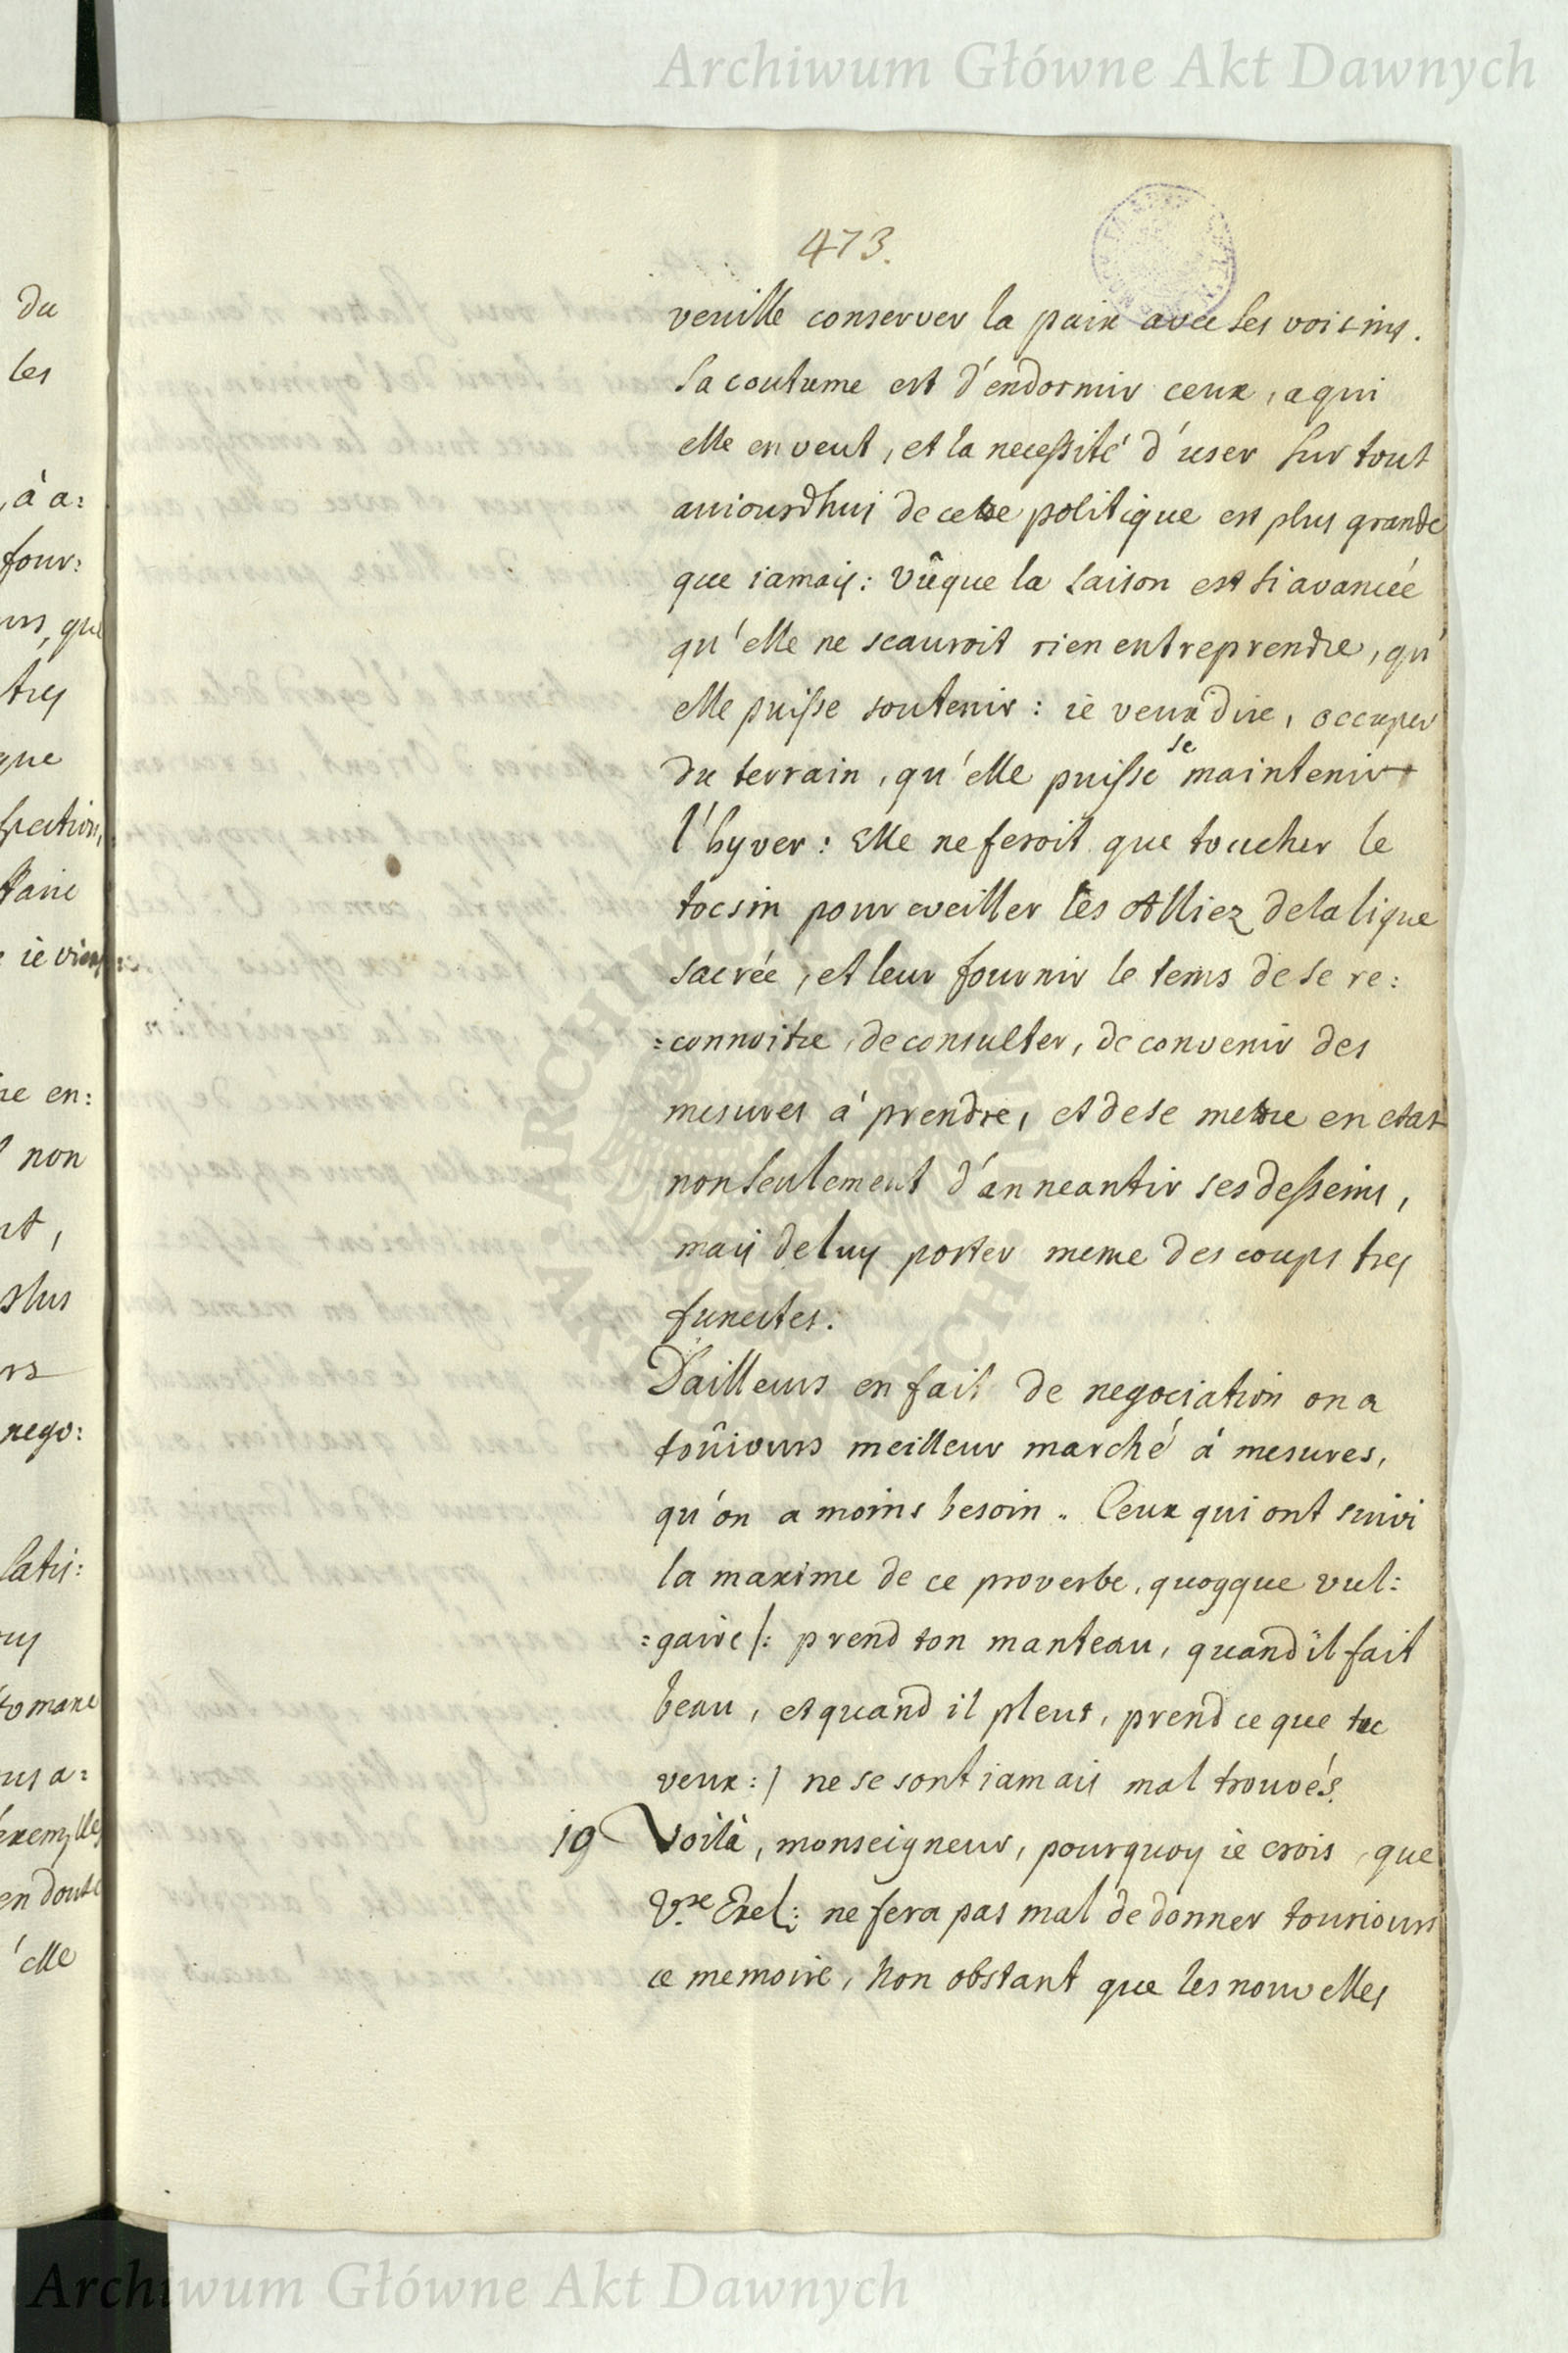 Archiwum Główne Akt Dawnych
473.
veuille conserver la paix avec ses voisins.
Sa coutume est d'endormir ceux, a qui
elle en veut, et la necessité d'user sur tout
auiourdhui de cette politique est plus grande
que iamais: vûque la saison est si avancée
qu'elle ne scauroit rien entreprendre, qu'
elle puisse soutenir: ie veux dire, occuper
du terrain, qu'elle puisse se maintenir
l'hyver: Elle ne feroit que toucher le
tocsin pour eveiller les Alliez de la ligue
sacrée, et leur fournir le tems de se re:
:connoitre, de consulter, de convenir des
mesures à prendre, et de se mettre en etat
non seulement d'anneantir ses desseins,
mais de luy porter meme des coups tres
funestes.
D'ailleurs en fait de negociation on a
toûiours meilleur marché à mesures,
qu'on a moins besoin. Ceux qui ont suivi
la maxime de ce proverbe, quoyque vul:
:gaire /: prend ton manteau, quand il fait
beau, et quand il pleut, prend ce que tu
veux :/ ne se sont iamais mal trouvés.
19 Voilà, monseigneur, pourquoy ie crois, que
V.re Exel: ne fera pas mal de donner touiours
ce memoire, non obstant que les nouvelles
du
les
à a:
four:
que
tres
que
ie
re en:
non
nego:
satis:
en doute
elle
Archiwum Główne Akt Dawnych